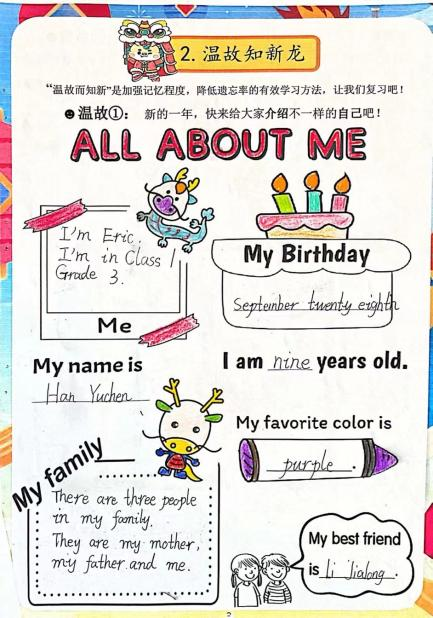 2. 温故知新龙
“温故而知新”是加强记忆程度，降低遗忘率的有效学习方法，让我们复习吧！
☻温故①： 新的一年，快来给大家介绍不一样的自己吧！
ALL ABOUT ME
I'm Eric.
I'm in Class 1
Grade 3.
Me
My Birthday
September twenty eighth
My name is
Han Yuchen
I am nine years old.
My favorite color is
purple.
My family
There are three people
in my family.
They are my mother,
my father and me.
My best friend
is li Jialong.
2